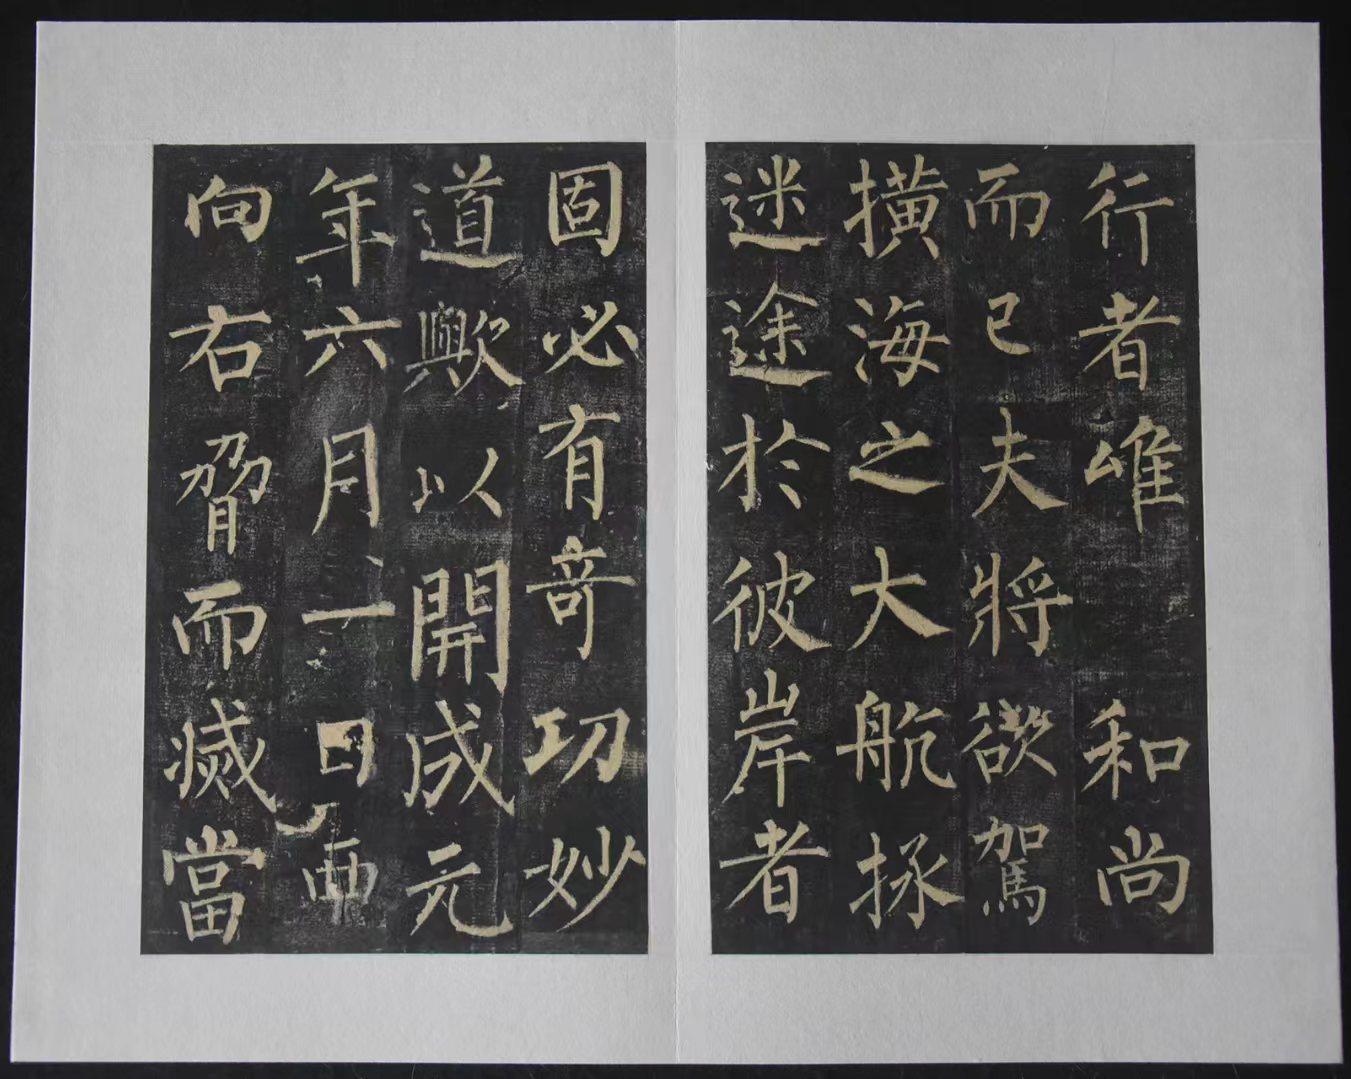 行者唯和尚
而已夫將欲駕
橫海之大航拯
迷途於彼岸者
固必有奇功妙
道歟以開成元
年六月一日西
向右脅而滅當